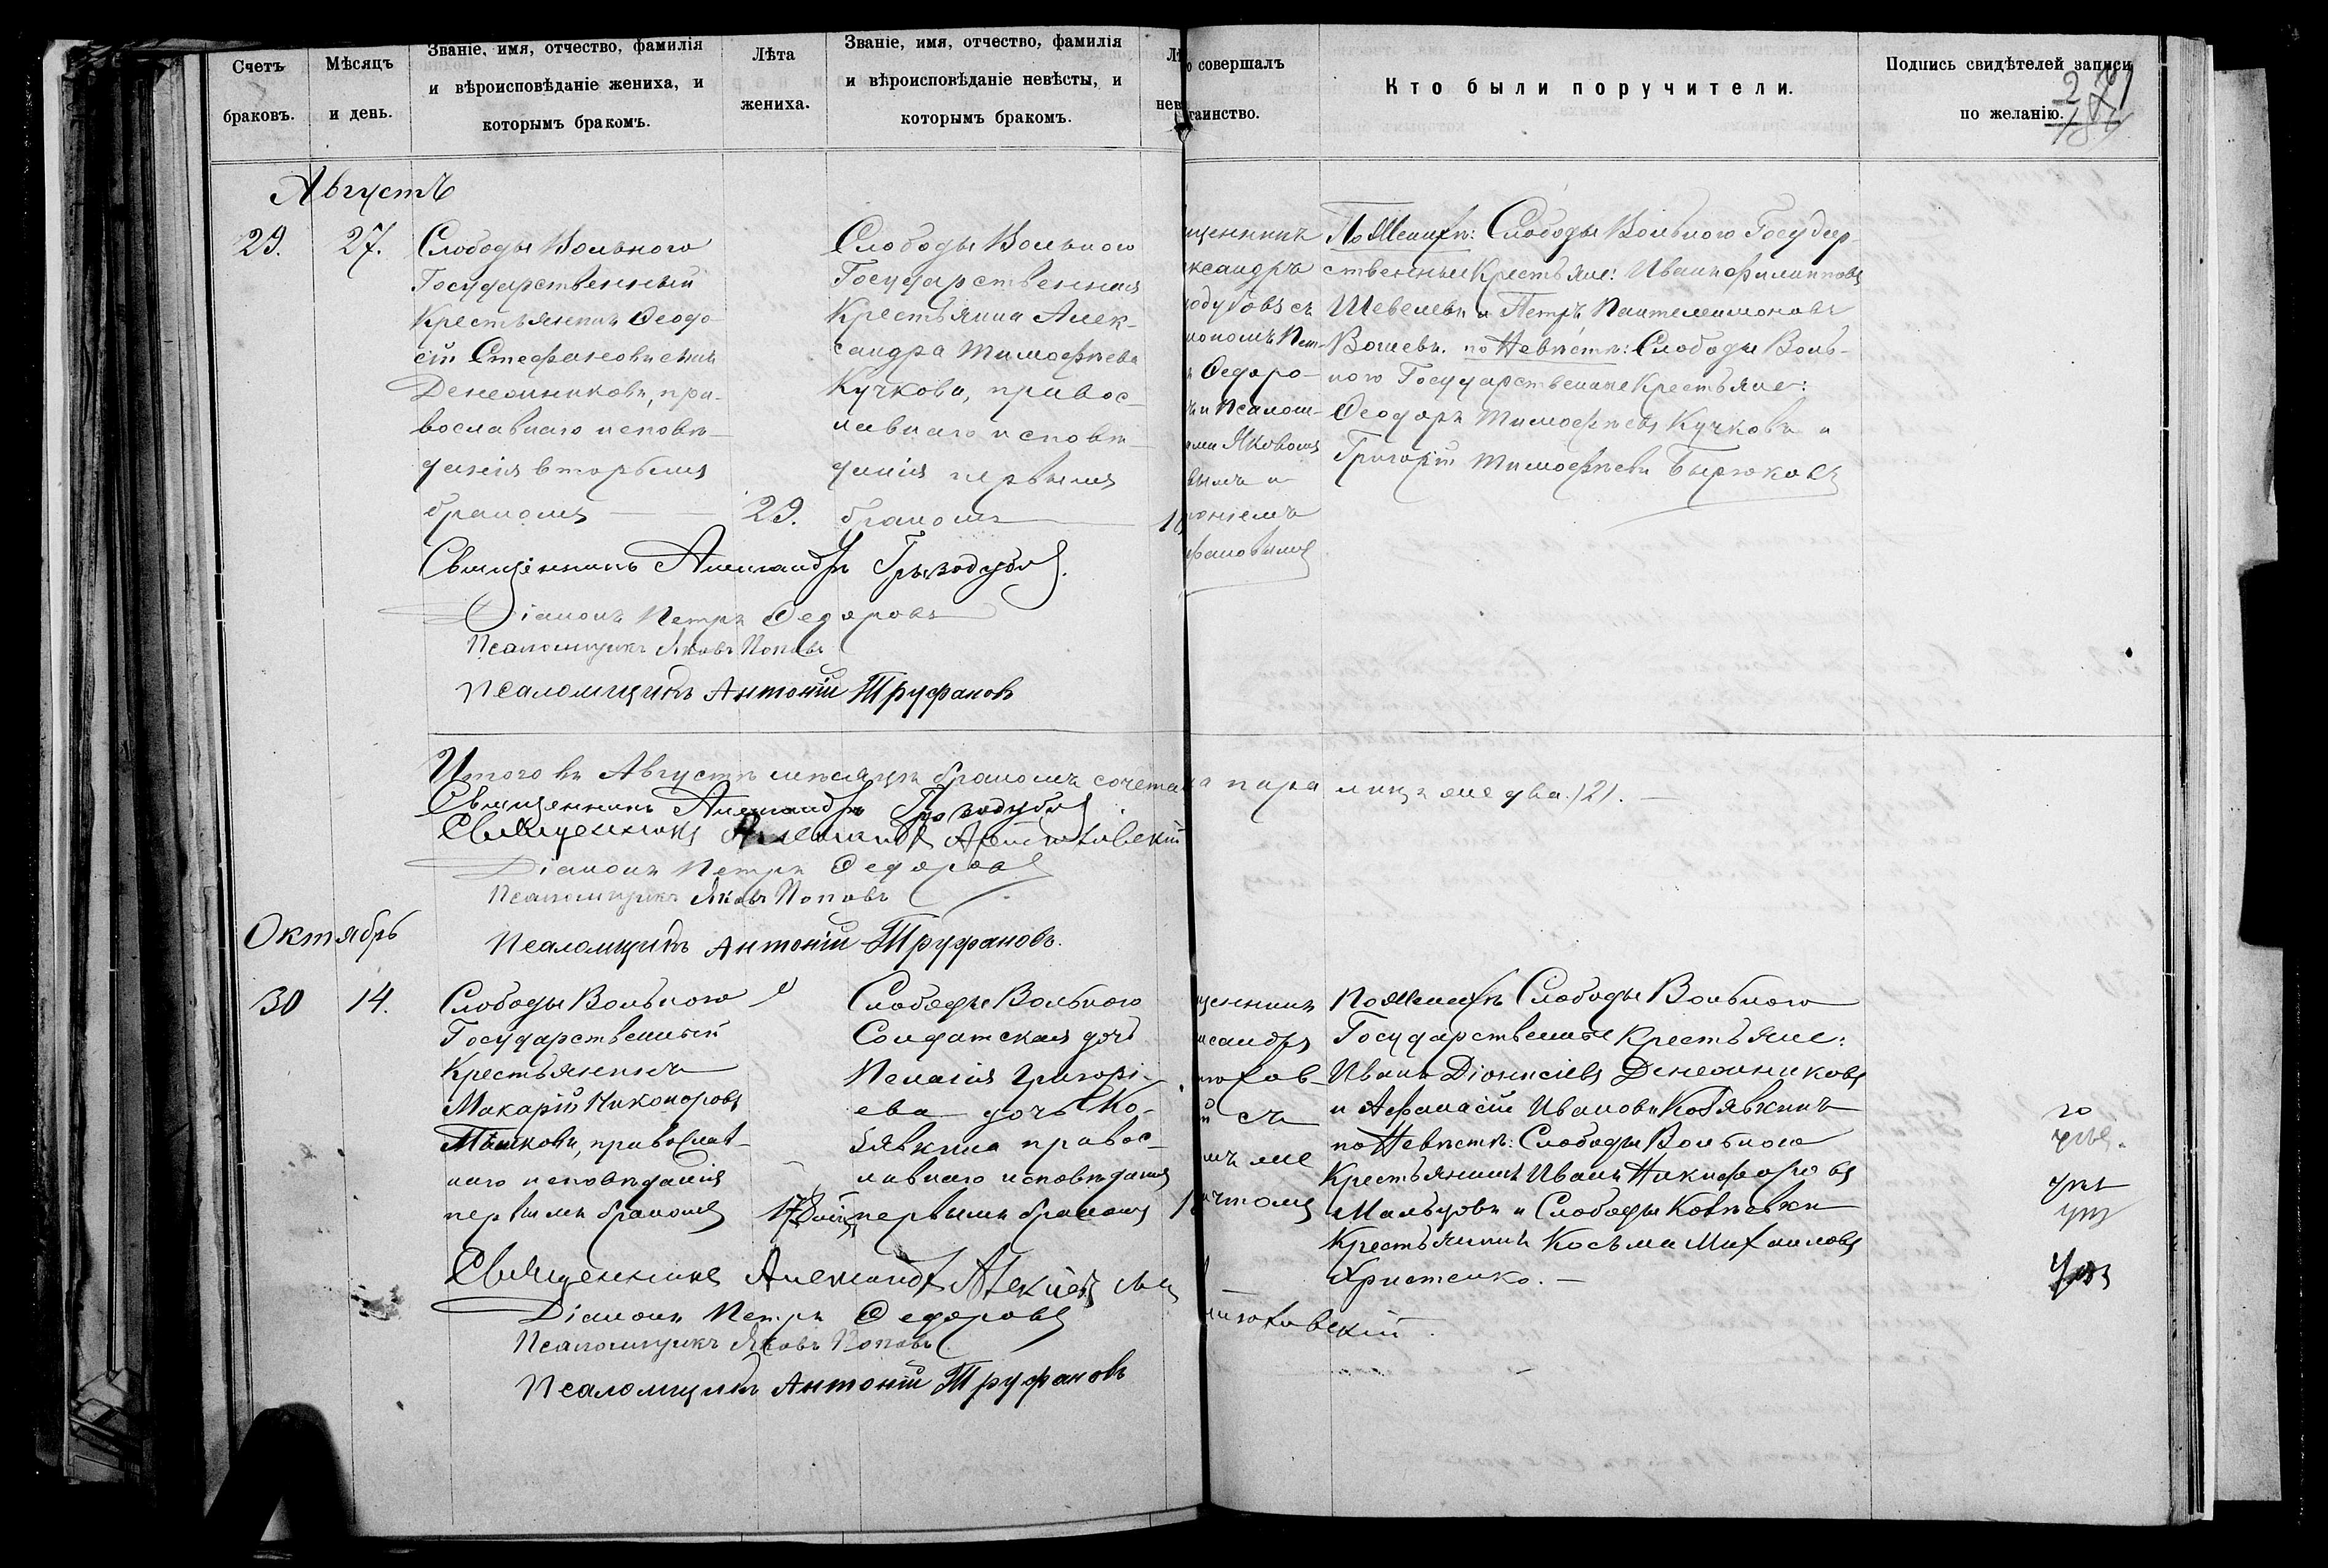 Счетъ браковъ.
Мѣсяцъ и день.
Званіе, имя, отчество, фамилія
и вѣроисповѣданіе жениха, и
которымъ бракомъ.
Лѣта
жениха.
Званіе, имя, отчество, фамилія
и вѣроисповѣданіе невѣсты, и
которымъ бракомъ.
совершалъ
таинство.
Кто были поручители.
Подпись свидѣтелей записи
по желанію.
Августъ
29.
27.
Слободы Вольного
Государственный
Крестьянинъ Ѳеодо-
сій Стефановъ сынъ
Денежниковъ, пра-
вославнаго исповѣ-
данія вторымъ
бракомъ
29.
Слободы Вольного
Государственная
Крестьянка Алек-
сандра Тимофѣева
Кучкова, правос-
лавнаго исповѣ-
данія первымъ
бракомъ
щенникъ
ксандръ
одубовъ съ
кономъ Пет-
Ѳедоро-
и Псалом-
ами Яковомъ
вымъ и
тоніемъ
фановымъ
По Женихѣ: Слободы Вольного Государ-
ственные Крестьяне: Иванъ Филипповъ
Шевелевъ и Петръ Пантелеимоновъ
по Невѣстѣ: Слободы Воль-
ного Государственные Крестьяне:
Ѳеодоръ Тимофѣевъ Кучковъ и
Григорій Тимофѣевъ Бырюковъ
Священникъ Александръ Грызодубовъ.
Діаконъ Петръ Ѳедоровъ
Псаломщикъ Яковъ Поповъ
Псаломщикъ Антоній Труфановъ
Итого въ Августѣ мѣсяцѣ бракомъ сочетана пара лицъ же два /2/.
Священникъ Александръ Грызодубовъ
Священникъ Александръ
Діаконъ Петръ Ѳедоровъ
Псаломщикъ Яковъ Поповъ
Псаломщикъ Антоній Труфановъ.
Октябрь
30
14.
Слободы Вольного
Государственный
Крестьянинъ
Макарій Никоноровъ
православ-
наго исповѣданія
первымъ бракомъ
Слободы Вольного
Солдатская дочь
Пелагія Григорі-
ева дочь Ко-
бявкина правос-
лавнаго исповѣданія
первымъ бракомъ
щенникъ
ксандръ
съ
мъ же
ичтомъ
По Женихѣ Слободы Вольного
Государственные Крестьяне:
Иванъ Діонисіевъ Денежниковъ
и Афанасій Ивановъ Кобявкинъ
по Невѣстѣ: Слободы Вольного
Крестьянинъ Иванъ Никифоровъ
Мальцовъ и Слободы
Крестьянинъ Косьма Михаиловъ
Христенко.
Священникъ Александръ Алексіевъ сынъ
Діаконъ Петръ Ѳедоровъ
Псаломщикъ Яковъ Поповъ.
Псаломщикъ Антоній Труфановъ